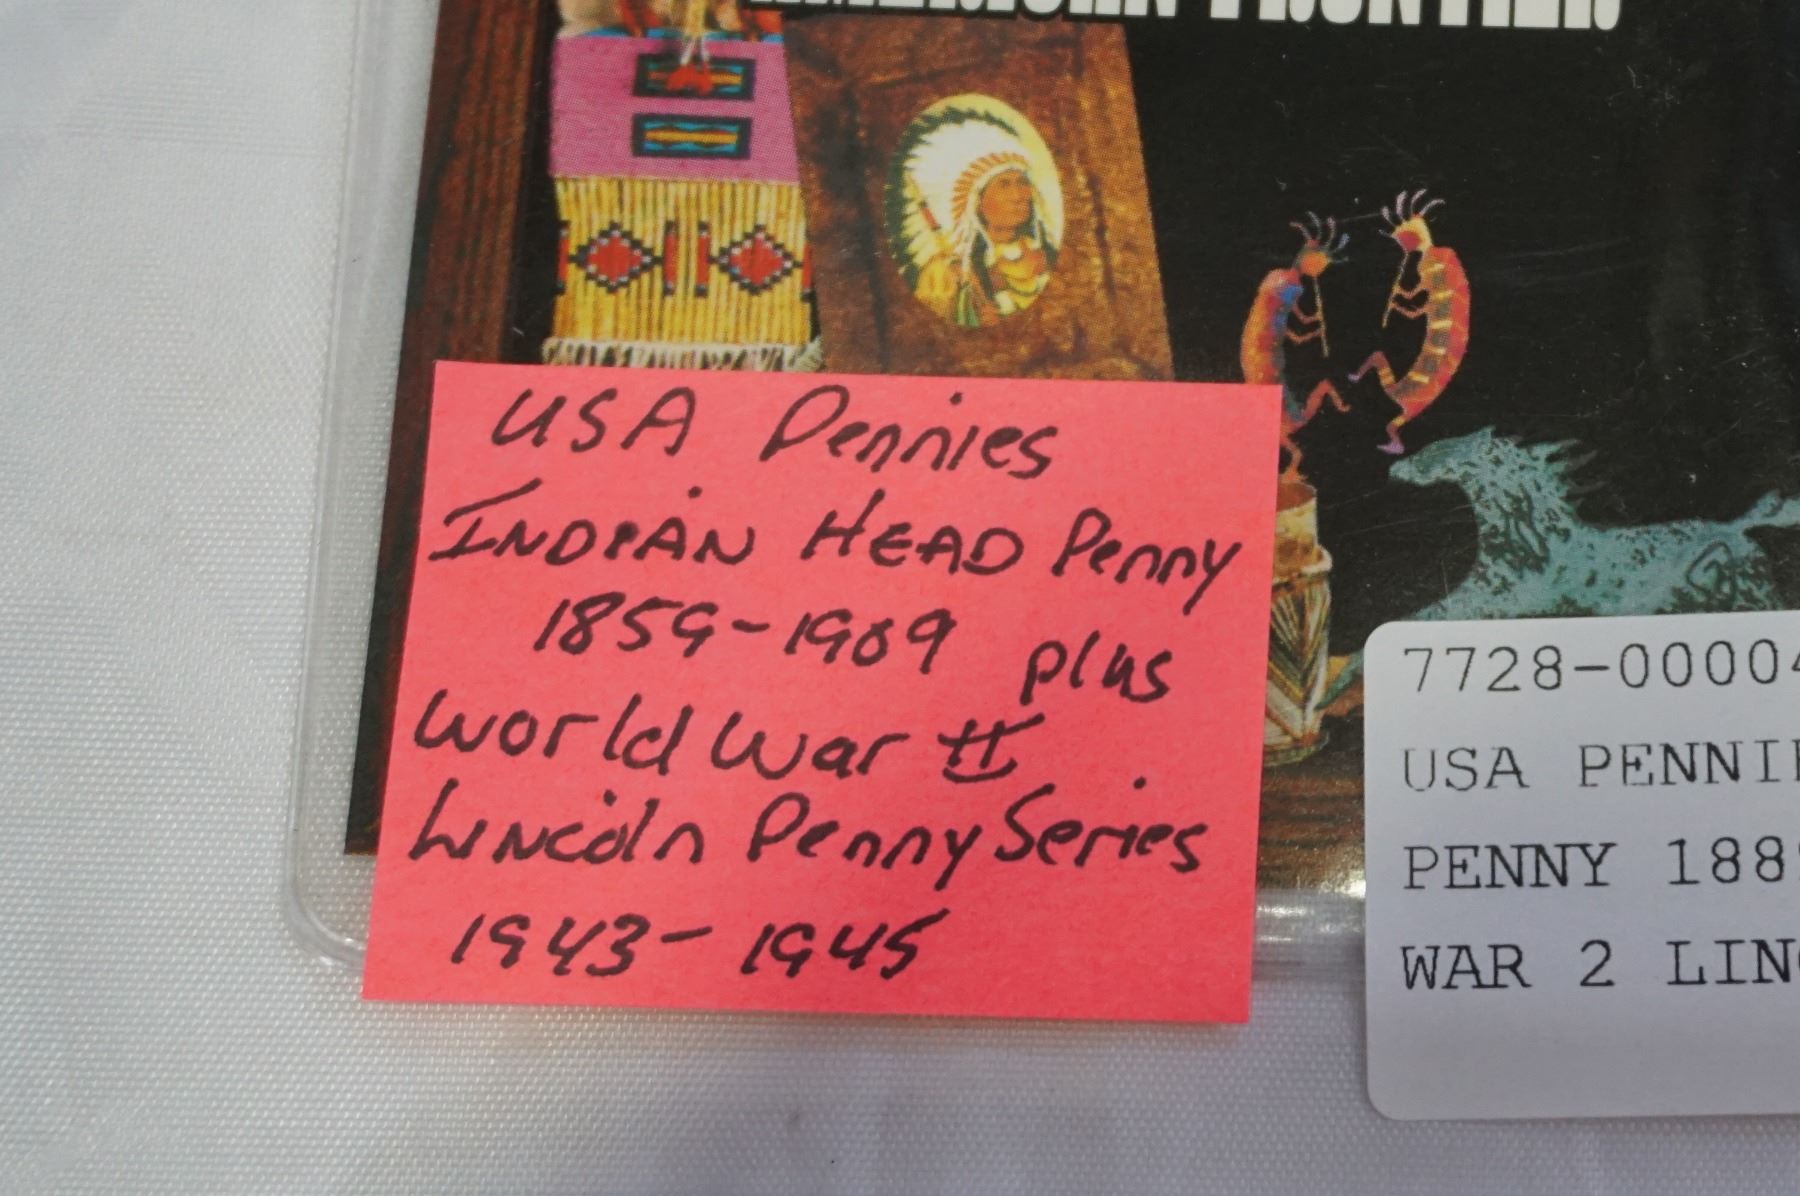 USA Pennies
INDIAN HEAD Penny
1859-1909 plus
World War II
LINcoln Penny Series
1943-1945
7728-00004
USA PENNIE
PENNY 188
WAR 2 LIN